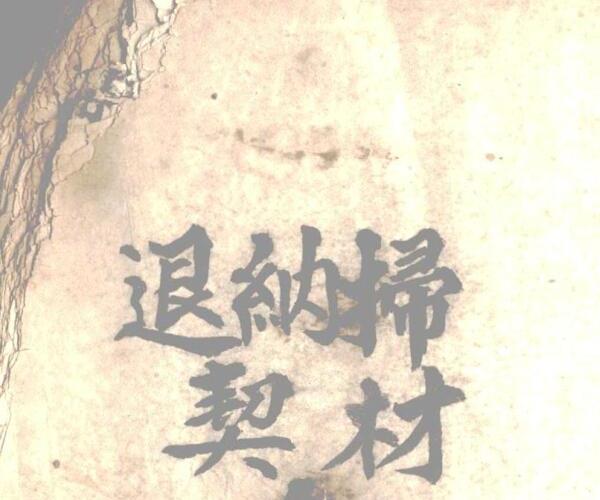 退納掃
契材